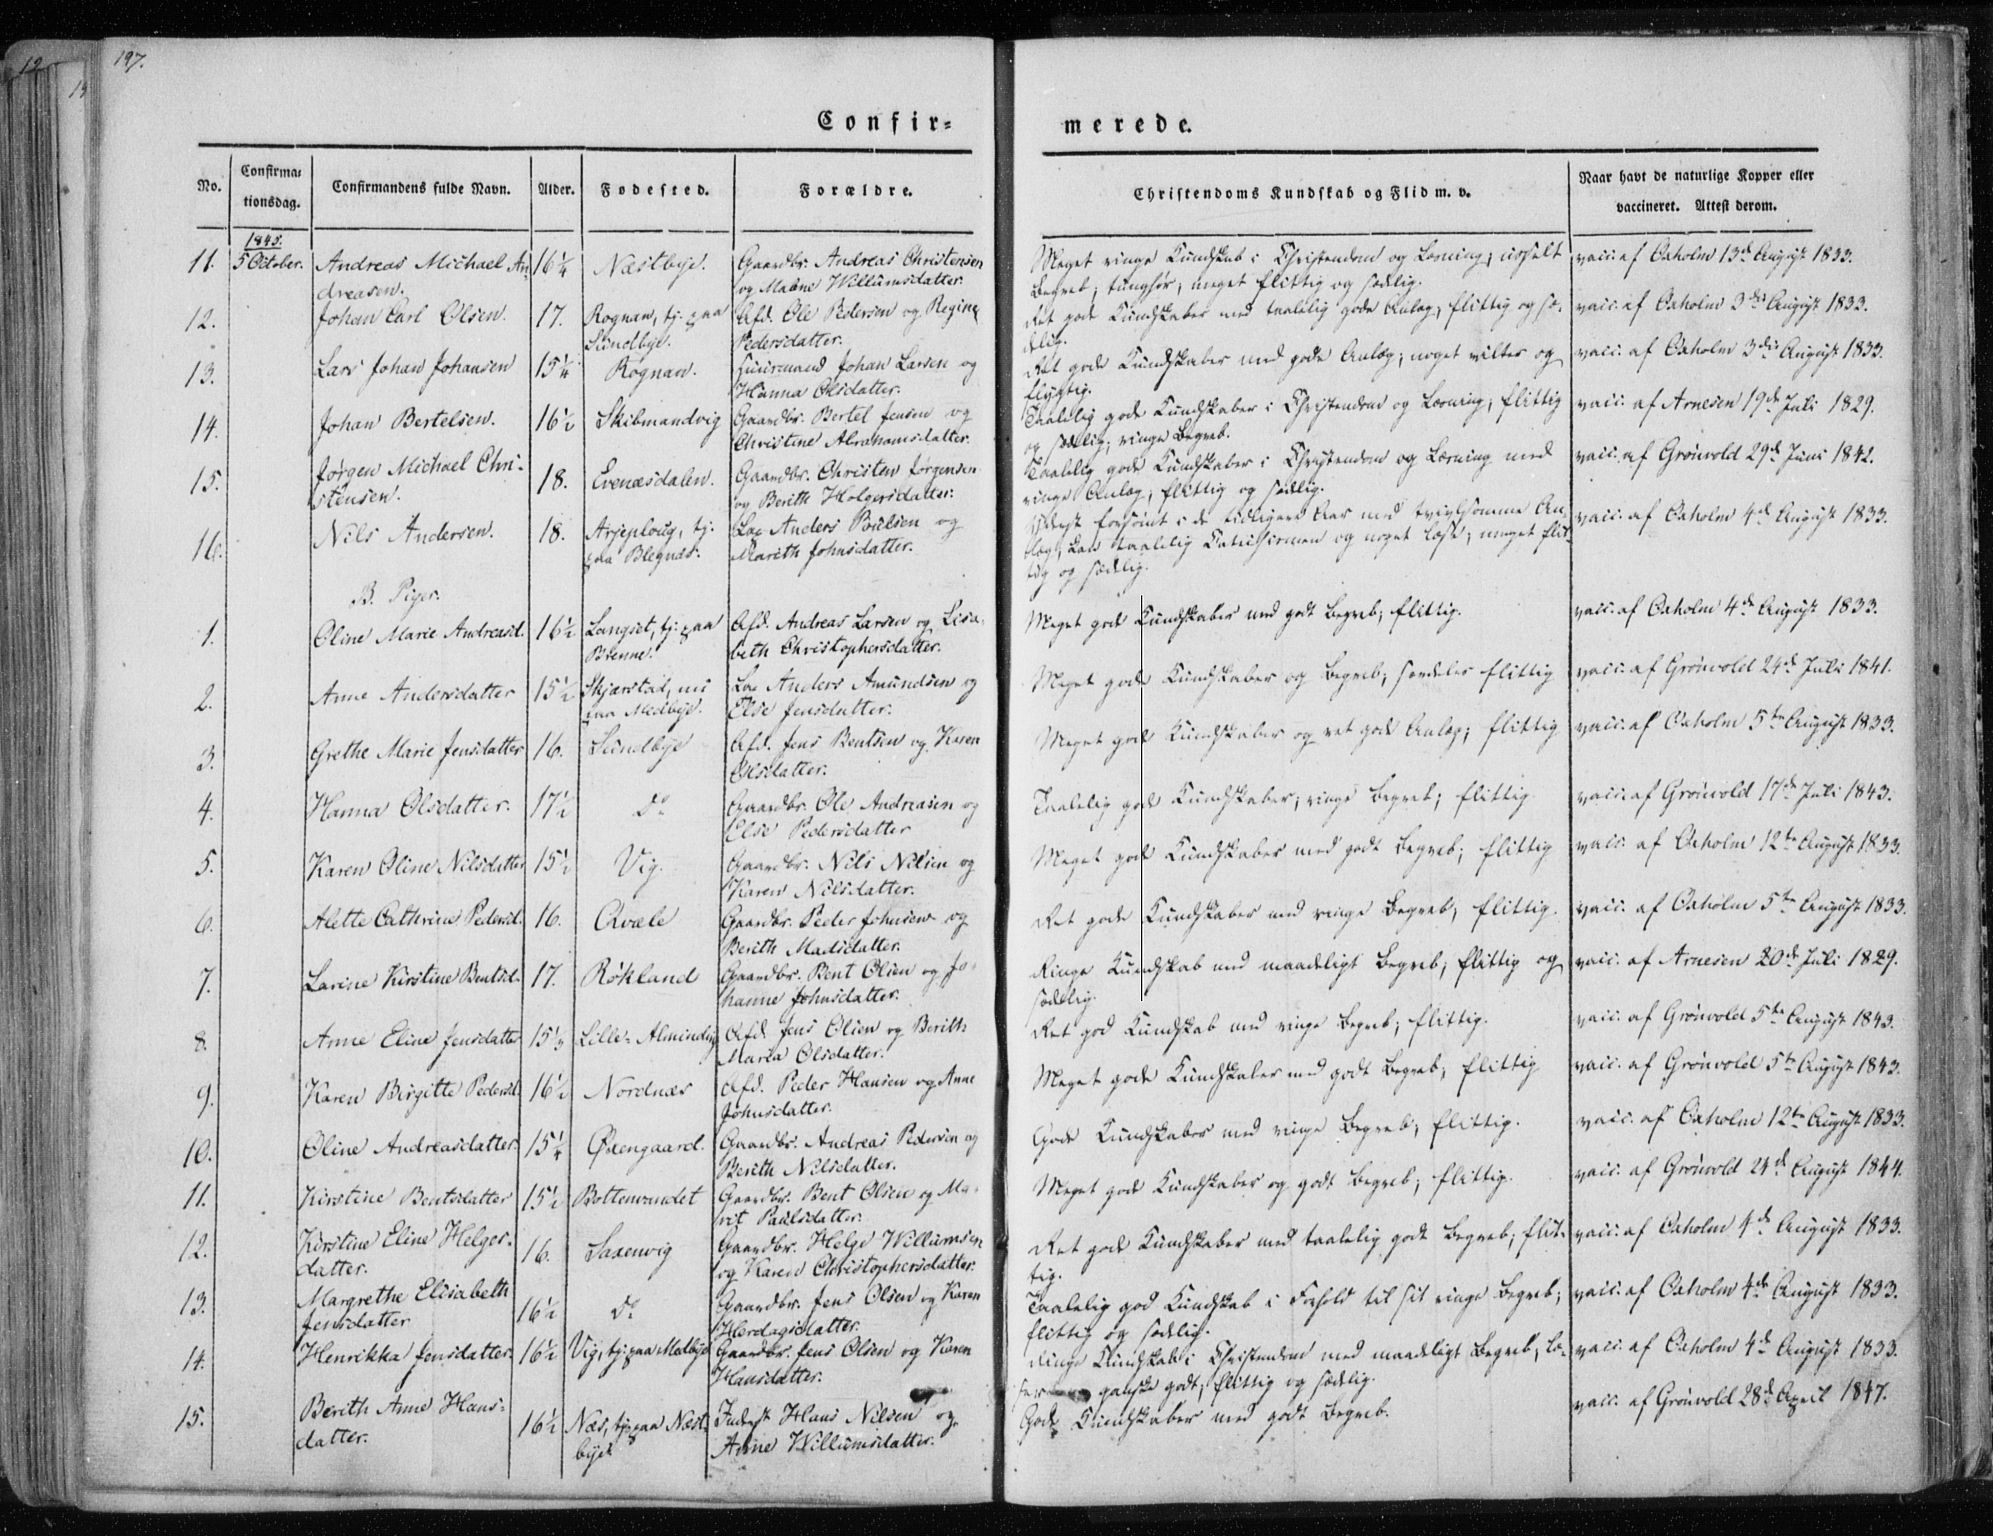 197.
Confir-
merede.
No.
Confirma-
tionsdag.
Confirmandens fulde Navn.
Alder.
Fodested.
Forældre.
Christendoms Kundskab og Flid m. v.
Naar havt de naturlige Kopper eller
vaccineret. Attest derom.
1845.
11. 5 October. Andreas Michael An- 16¼ Næstbye. Gaardbr. Andreas Christensen Meget ringe Kundskab i Christendom og Læsning; usselt vacc. af Oxholm 13de August 1833.
dreasen. og Malene Willumsdatter. Begreb; tunghør; meget flittig og sædelig.
12. Johan Carl Olsen. 17. Rognan, tj. paa Afd. Ole Pedersen og Regine Ret gode Kundskaber med taalelig gode Anlæg; flittig og sæ- vacc. af Oxholm 3die August 1833.
Sundbye. Pedersdatter. delig.
13. Lars Johan Johansen 15¼ Rognan. Huusmand Johan Larsen og Ret gode Kundskaber med gode Anlæg; noget vilter og vacc. af Oxholm 3die August 1833.
Hanna Olsdatter. flygtig.
14. Johan Bertelsen. 16½ Skibmandvig Gaardbr. Bertel Jensen og Taalelig gode Kundskaber i Christendom og Læsning; flittig vacc. af Arnesen 19de Juli 1829.
Christine Abrahamsdatter. og sædelig; ringe Begreb.
15. Jørgen Michael Chri- 18. Evenæsdalen. Gaardbr. Christen Jørgensen Taalelig gode Kundskaber i Christendom og Læsning med vacc. af Grønvold 29de Juni 1842.
stensen. og Berith Holgersdatter. ringe Anlæg; flittig og sædelig.
16. Nils Andersen. 18. Arjeploug, tj. Lap Anders Poulsen og Yderst forsømt i de tidligere Aar med tvivlsomme An- vacc. af Oxholm 4de August 1833.
paa Blegnæs. Marith Johnsdatter. læg; kan taalelig Catechismen og noget læse; meget flit-
tig og sædelig.
B. Piger.
1. Oline Marie Andreasd. 16½ Langset, tj. paa Afd. Andreas Larsen og Lisa- Meget gode Kundskaber med godt Begreb; flittig. vacc. af Oxholm 4de August 1833.
Brenne. beth Christophersdatter.
2. Anne Andersdatter 15½ Skjærstad, nu Lap Anders Amundsen og Meget gode Kundskaber og Begreb; særdeles flittig vacc. af Grönvold 24de Juli 1841.
paa Medbye. Else Jensdatter.
3. Grethe Marie Jensdatter 16. Sundbye Afd. Jens Bentsen og Karen Meget gode Kundskaber og ret gode Anlæg; flittig vacc. af Oxholm 5te August 1833.
Olsdatter.
4. Hanna Olsdatter. 17½ Do Gaardbr. Ole Andreasen og Taalelig gode Kundskaber; ringe Begreb; flittig vacc. af Grönvold 17de Juli 1843.
Else Pedersdatter
5. Karen Oline Nilsdatter 15½ Vig. Gaardbr. Nils Nilsen og Meget gode Kundskaber med godt Begreb; flittig vacc. af Oxholm 12te August 1833.
Karen Nilsdatter.
6. Alette Cathrine Pedersd. 16. Qvæle Gaardbr. Peder Johnsen og Ret gode Kundskaber med ringe Begreb; flittig. vacc. af Oxholm 5te August 1833.
Berith Madsdatter.
7. Larine Kirstine Bentsd. 17. Røkland Gaardbr. Bent Olsen og Jo- Ringe Kundskab med maadeligt Begreb; flittig og vacc. af Arnesen 20de Juli 1829.
hanne Johnsdatter. sædelig.
8. Anne Eline Jensdatter 15⅓ Lille-Alminding Afd. Jens Olsen og Berith Ret god Kundskab med ringe Begreb; flittig. vacc. af Grönvold 5te August 1843.
Maria Olsdatter.
9. Karen Birgitte Pedersd. 16½ Nordnæs Afd. Peder Hansen og Anne Meget gode Kundskaber med godt Begreb; flittig vacc. af Grönvold 5te August 1843.
Johnsdatter.
10. Oline Andreasdatter. 15¼ Øxengaard. Gaardbr. Andreas Pedersen og Gode Kundskaber med ringe Begreb; flittig. vacc. af Oxholm 12te August 1833.
Berith Nilsdatter.
11. Kirstine Bentsdatter 15½ Bottenvandet Gaardbr. Bent Olsen og Ma- Meget gode Kundskaber og godt Begreb; flittig. vacc. af Grönvold 24de August 1844.
rit Paulsdatter.
12. Kirstine Eline Helges- 16. Saxenvig Gaardbr. Helge Willumsen Ret gode Kundskaber med taalelig godt Begreb; flit- vacc. af Oxholm 4de August 1833.
datter. og Karen Christophersdatter. tig.
13. Margrethe Elisabeth 16½ Do Gaardbr. Jens Olsen og Karen Taalelig god Kundskab i Forhold til sit ringe Begreb; vacc. af Oxholm 4de August 1833.
Jensdatter Herdagsdatter. flittig og sædelig.
14. Henrikka Jensdatter. 16½ Vig, tj. paa Medbye Gaardbr. Jens Olsen og Karen Ringe Kundskab i Christendom med maadeligt Begreb; læ- vacc. af Oxholm 4de August 1833.
Hansdatter. ser ganske godt; flittig og sædelig.
15. Berith Anne Hans- 16½ Næs, tj. paa Næst- Inderst Hans Nilsen og Gode Kundskaber med godt Begreb. vacc. af Grönvold 28de April 1847.
datter. bye Anne Willumsdatter.